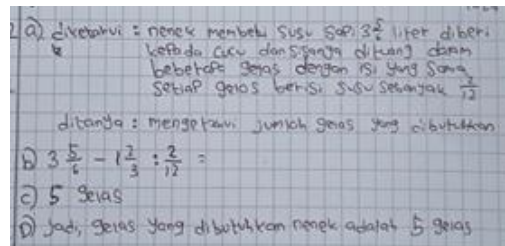 2 a) diketahui : nenek membeli susu sapi 3 5/6 liter diberi
kepada cucu dan sisanya dituang dalam
beberapa gelas dengan isi yang sama
setiap gelas berisi susu sebanyak 2/12
ditanya : mengetahui jumlah gelas yang dibutuhkan
b) 3 5/6 - 1 2/3 : 2/12 =
c) 5 gelas
D) Jadi, gelas yang dibutuhkan nenek adalah 5 gelas